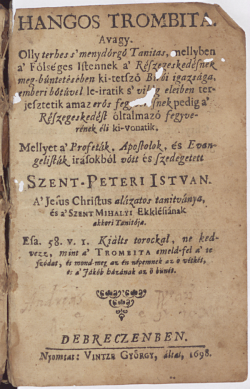 HANGOS TROMBITA.
Avagy.
Olly terhes s' menydörgö Tanitas, mellyben
a' Fölséges Istennek a' Részegeskedésnek
meg-büntetésében ki-tetszö igazsága,
emberi bötüvel le-iratik s' világ eleiben ter-
jesztetik amaz erös pedig a'
Részegeskedést óltalmazó fegyve-
rének éli ki-vonatik.
Mellyet a' Profeták, Apostolok, és Evan-
gelisták irásokból vött és szedegetett
SZENT-PETERI ISTVAN.
A' Jesus Christus alázatos tanitványa,
és a' SZENT MIHALYI Ekklésiának
akkori Tanitója.
Esa. 58. v. 1. Kiálts torockal, ne ked-
vezz, mint a' TROMBITA emeld-fel a' te
szódat, és mond-meg az én népemnek az ö vétkét,
és a' Jákób házának az ö bünét.
DEBRECZENBEN.
Nyomtat: VINTZE GYÖRGY, által, 1698.